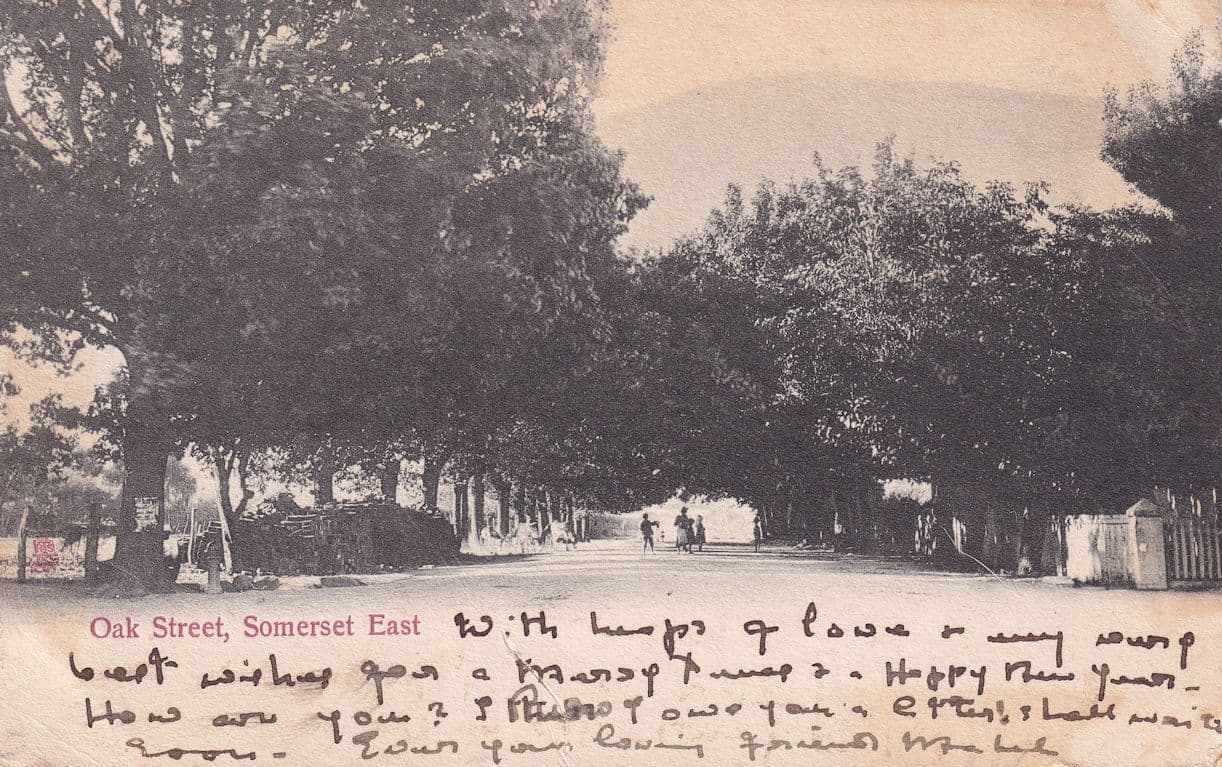 Oak Street, Somerset East
With heaps of love & my very
best wishes for a Merry Xmas & a Happy New Year -
How are you? I know I owe you a letter, shall write
soon - Ever your loving friend Mabel